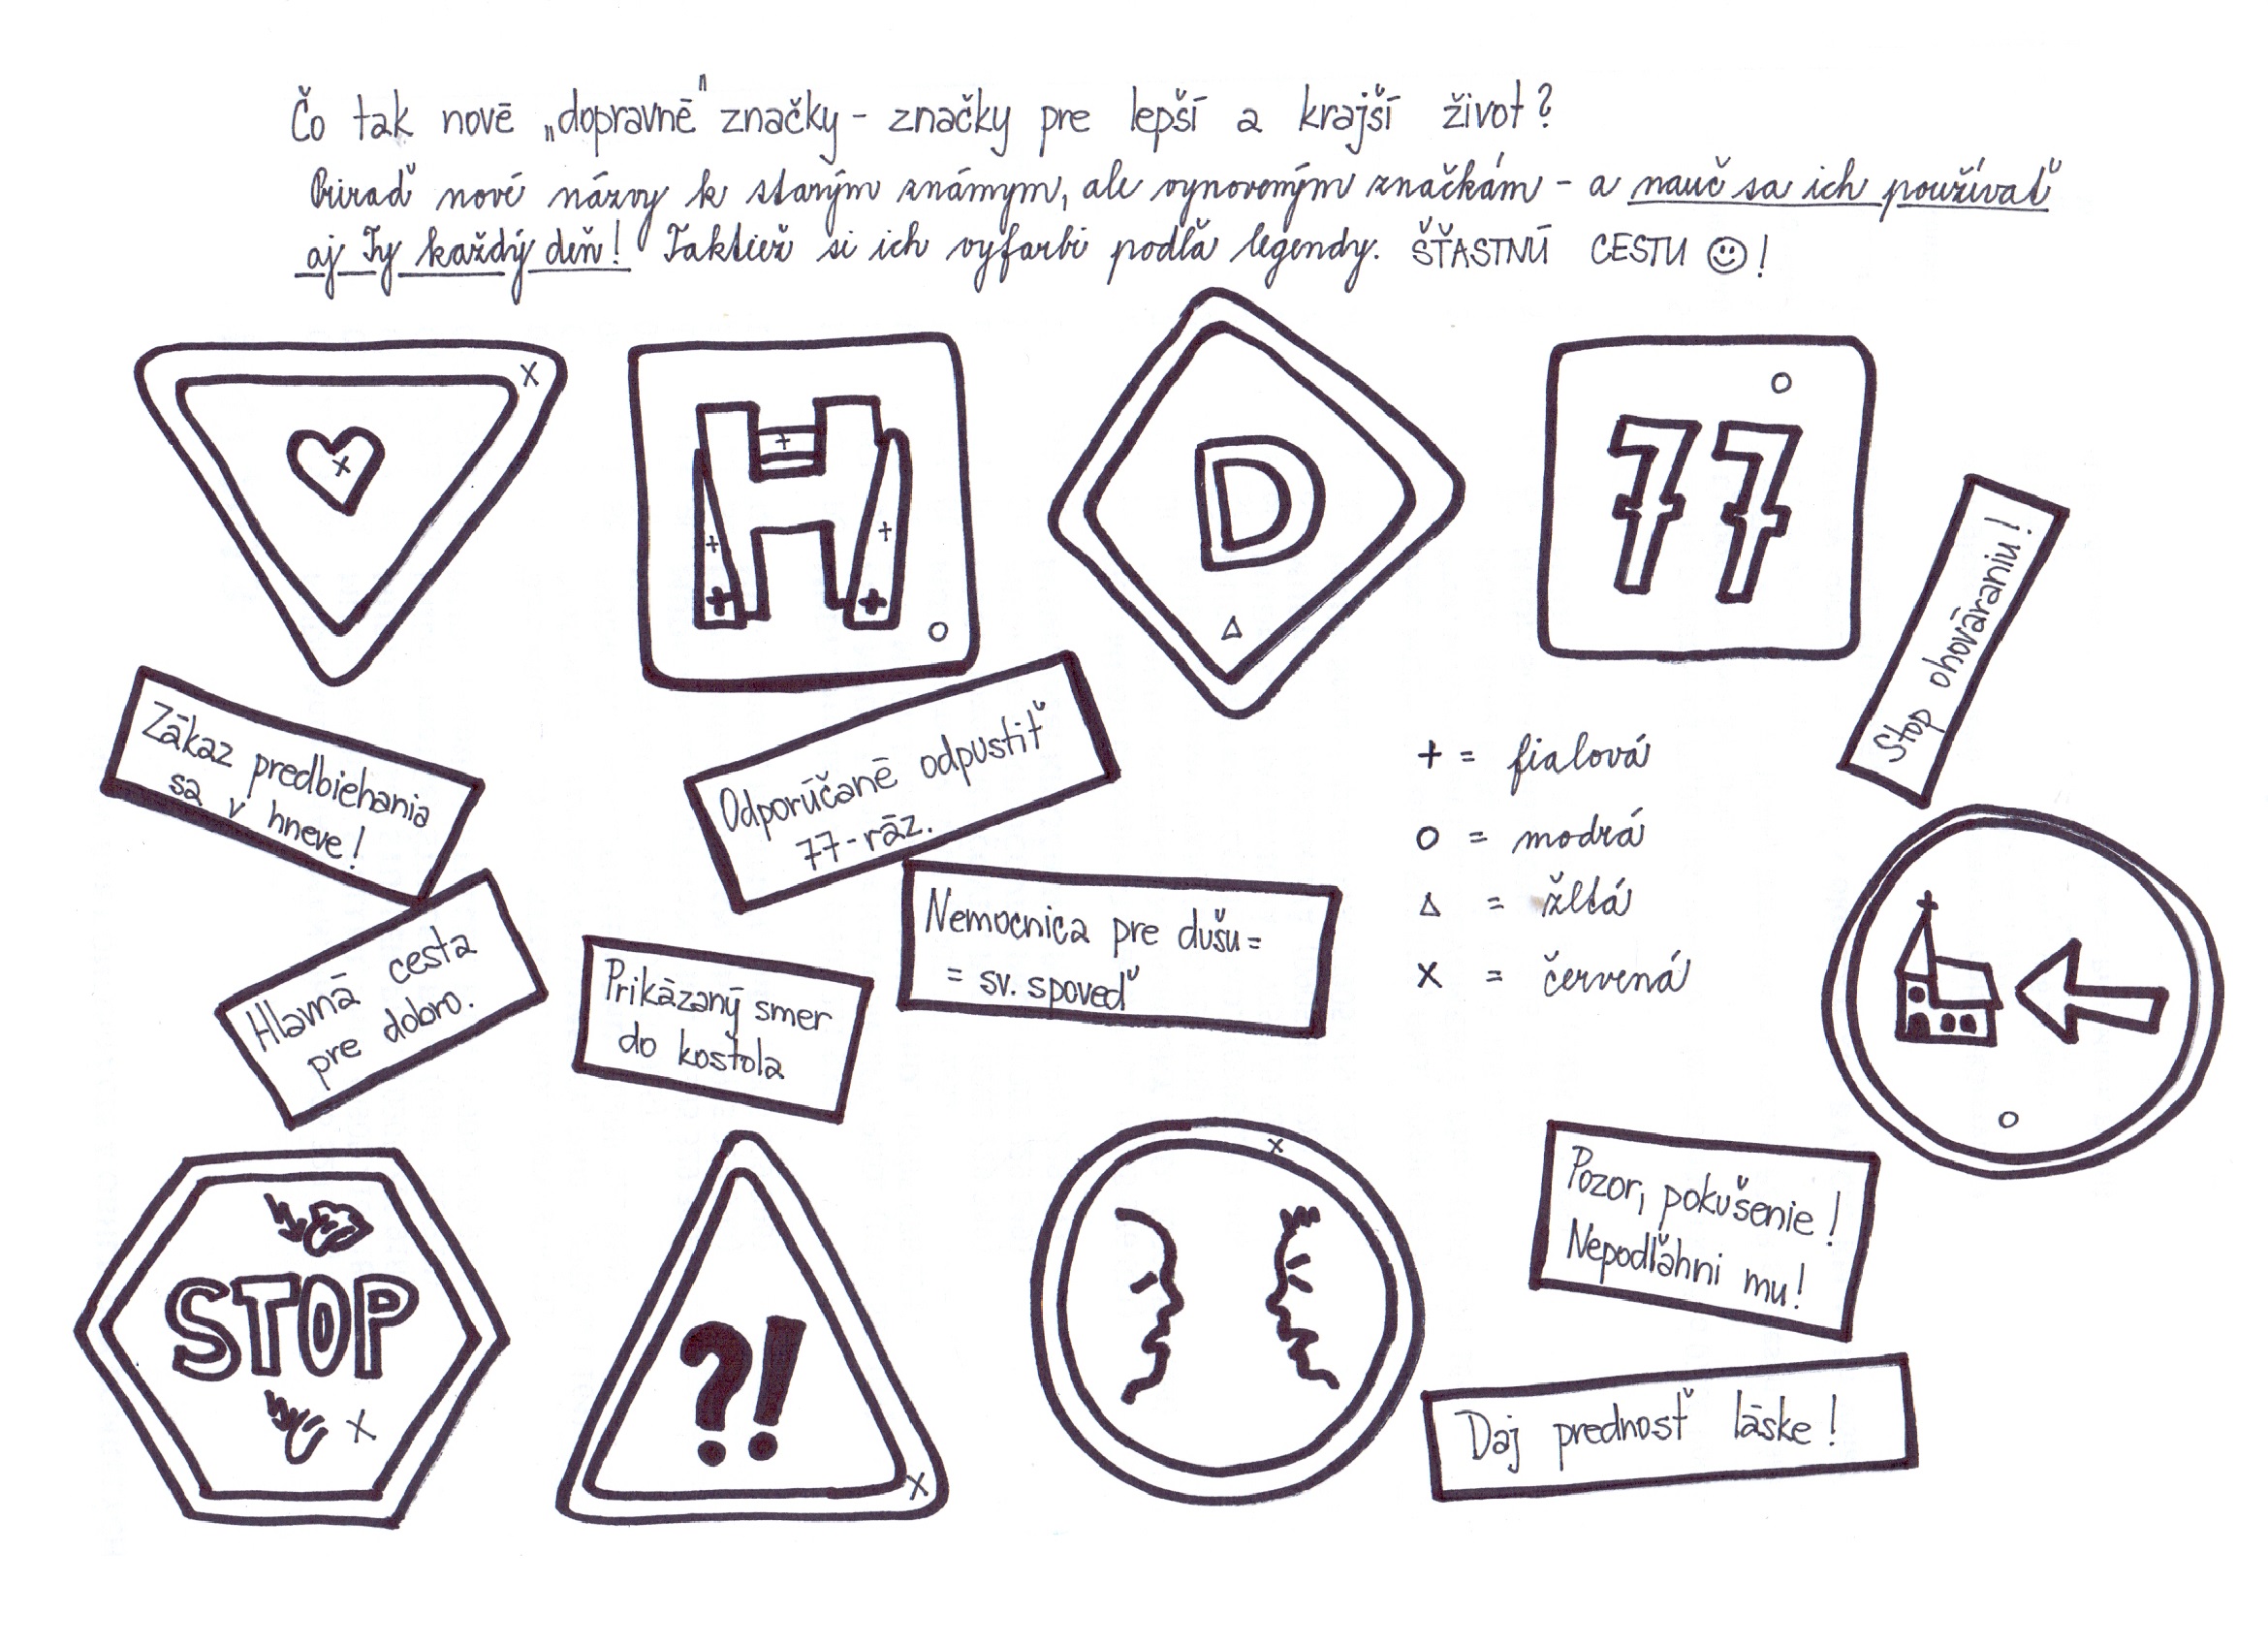 Čo tak nové „dopravné" značky - značky pre lepší a krajší život?
Prirad nové názvy k starým známym, ale vynoveným značkám - a nauč sa ich používať
aj Ty každý deň! Taktiež si ich vyfarbi podľa legendy. ŠŤASTNÚ CESTU ☺!
x
x
H
+
+
+
+
+
o
D
△
o
77
Stop ohováraniu!
Zákaz predbiehania
sa v hneve!
Odporúčané odpustiť
77-ráz.
+ = fialová
o = modrá
△ = žltá
x = červená
Nemocnica pre dušu =
= sv. spoveď
Hlavná cesta
pre dobro.
Prikázaný smer
do kostola
o
STOP
x
?!
x
x
Pozor, pokušenie!
Nepodľahni mu!
Daj prednosť láske!